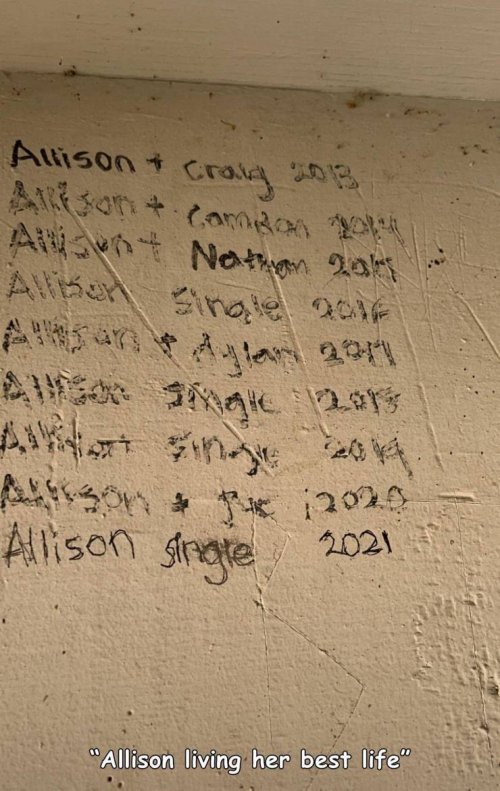 Allison + Craig 2013
Allison + Camdon 2014
Allison + Nathan 2015
Allison Single 2016
Allison + dylan 2017
Allison Single 2018
Allison Single 2019
Allison + 2020
Allison single 2021
“Allison living her best life”